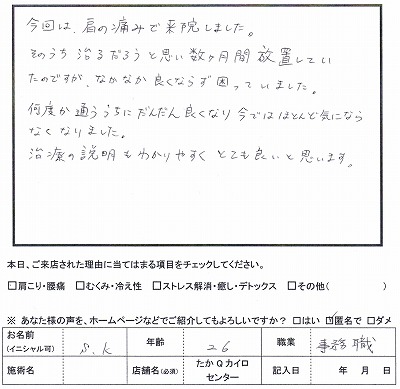 今回は、肩の痛みで来院しました。
そのうち治るだろうと思い数ヶ月間放置してい
たのですが、なかなか良くならず困っていました。
何度か通ううちにだんだん良くなり今ではほとんど気になら
なくなりました。
治療の説明もわかりやすくとても良いと思います。
本日、ご来店された理由に当てはまる項目をチェックしてください。
☐肩こり・腰痛 ☐むくみ・冷え性 ☐ストレス解消・癒し・デトックス ☐その他( )
※ あなた様の声を、ホームページなどでご紹介してもよろしいですか？ ☐はい ☑匿名で ☐ダメ
お名前(イニシャル可) S.K 年齢 26 職業 事務職
施術名 店舗名(必須) たかQカイロセンター 記入日 年 月 日